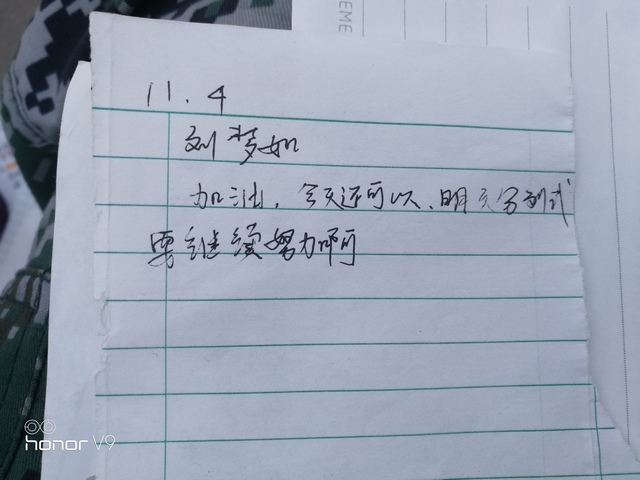 EME
11.4
刘梦如
加油,今天还可以、明天分列式
要继续努力啊
honor V9